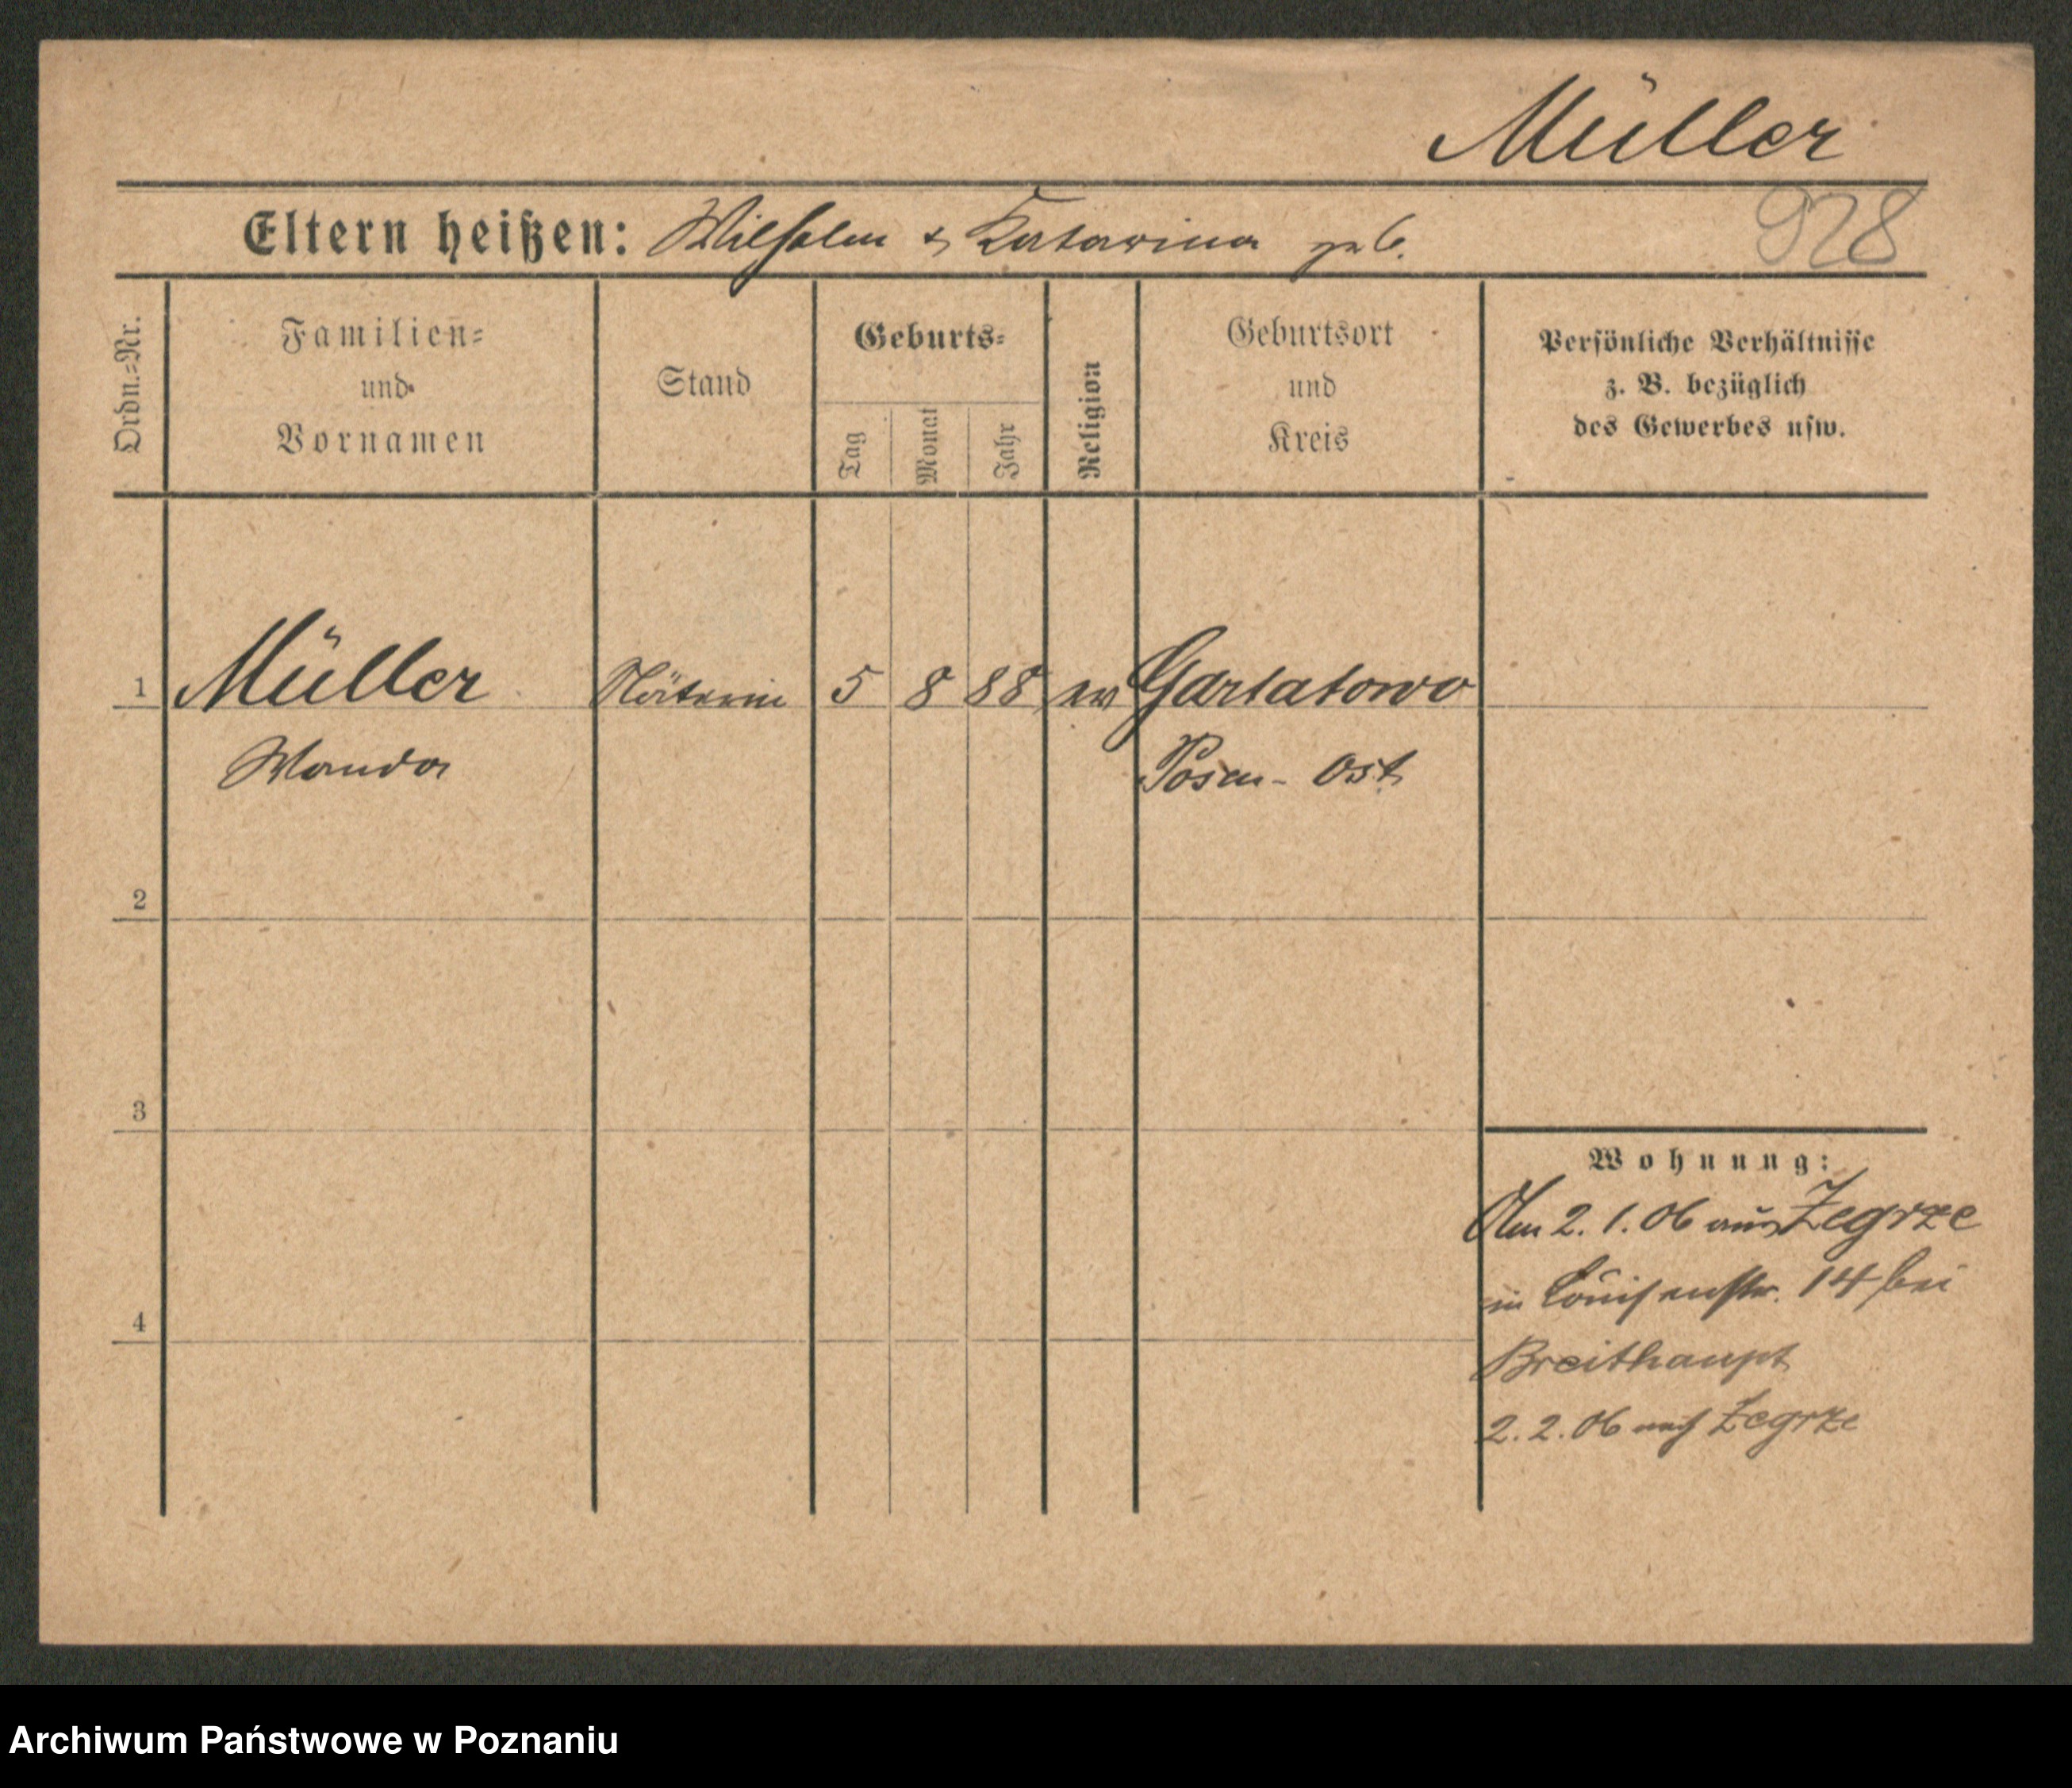 Müller
928
Eltern heißen: Wilhelm & Katarina geb.
Ordn.-Nr.
Familien-
und
Vornamen
Stand
Geburts-
Tag
Monat
Jahr
Religion
Geburtsort
und
Kreis
Persönliche Verhältnisse
z. B. bezüglich
des Gewerbes usw.
1 Müller Näterin 5 8 88 ev Gartatowo
Wanda Posen-Ost
2
3
4
Wohnung:
Am 2. 1. 06 aus Zegrze
in Louisenstr. 14 bei
Breithaupt
2. 2. 06 nach Zegrze
Archiwum Państwowe w Poznaniu